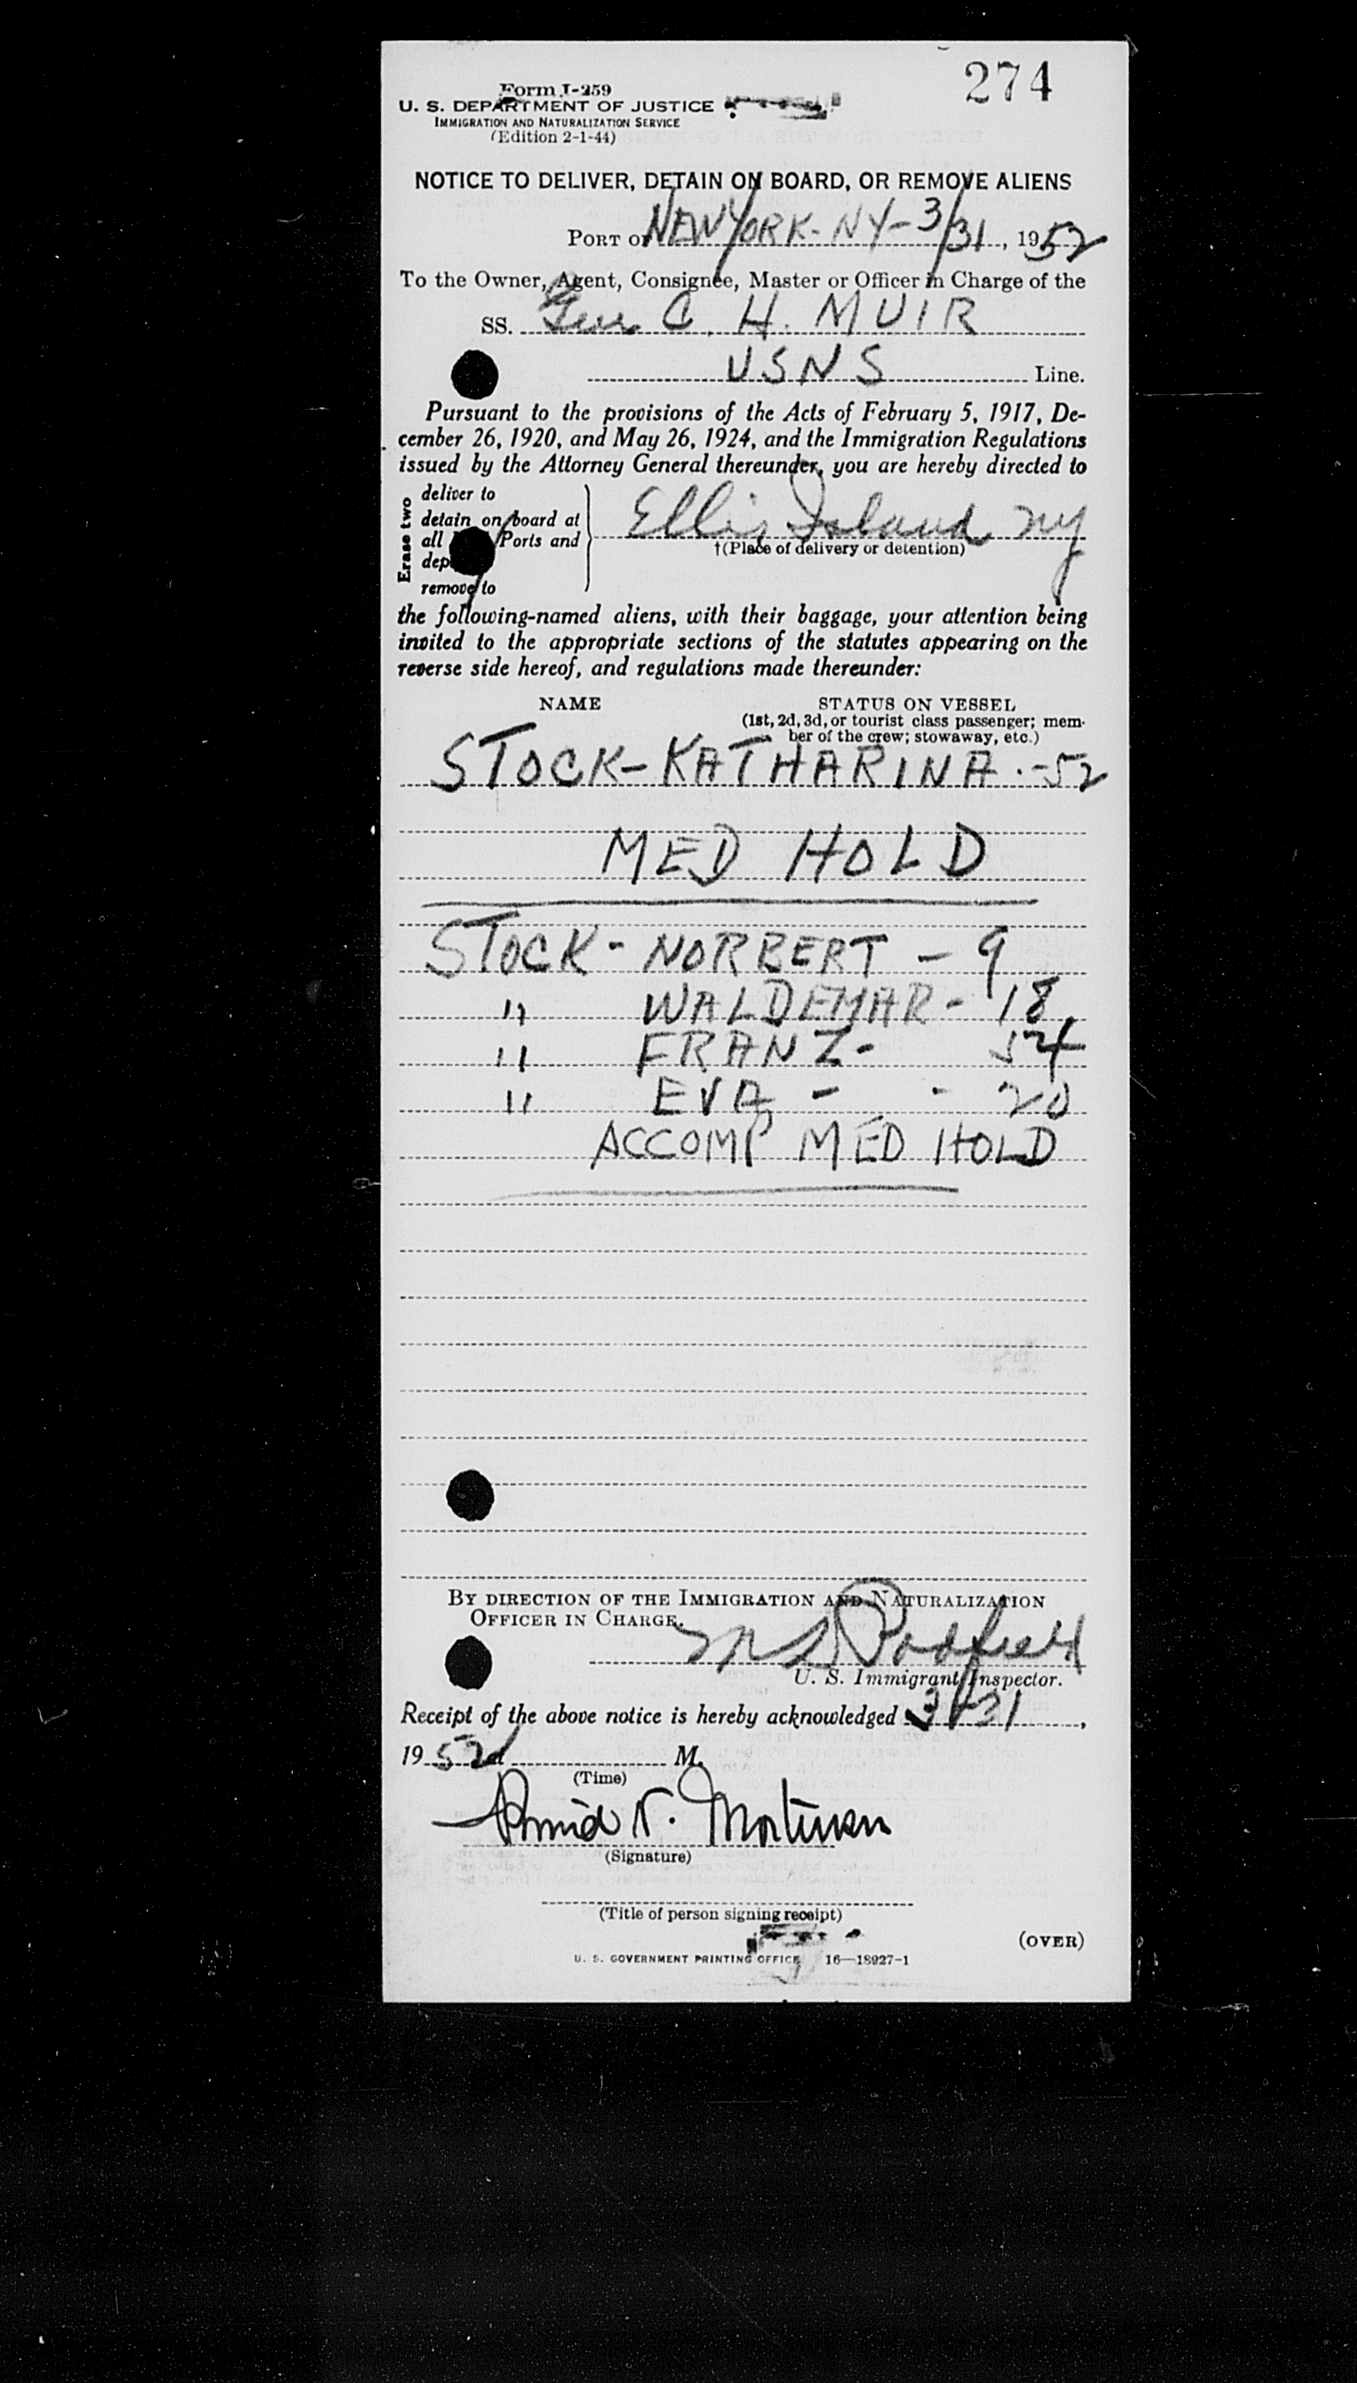 274
Form I-259
U. S. DEPARTMENT OF JUSTICE
IMMIGRATION AND NATURALIZATION SERVICE
(Edition 2-1-44)
NOTICE TO DELIVER, DETAIN ON BOARD, OR REMOVE ALIENS
PORT OF NEW YORK - NY - 3/31, 1952
To the Owner, Agent, Consignee, Master or Officer in Charge of the
SS. Gen C. H. MUIR
USNS Line.
Pursuant to the provisions of the Acts of February 5, 1917, De-
cember 26, 1920, and May 26, 1924, and the Immigration Regulations
issued by the Attorney General thereunder, you are hereby directed to
Erase two
deliver to
detain on board at
all Ports and
dep
remove to
Ellis Island NY
†(Place of delivery or detention)
the following-named aliens, with their baggage, your attention being
invited to the appropriate sections of the statutes appearing on the
reverse side hereof, and regulations made thereunder:
NAME STATUS ON VESSEL
(1st, 2d, 3d, or tourist class passenger; mem-
ber of the crew; stowaway, etc.)
STOCK - KATHARINA - 52
MED HOLD
STOCK - NORBERT - 9
" WALDEMAR - 18
" FRANZ - 54
" EVA - - 20
ACCOMP MED HOLD
BY DIRECTION OF THE IMMIGRATION AND NATURALIZATION
OFFICER IN CHARGE.
U. S. Immigrant Inspector.
Receipt of the above notice is hereby acknowledged 3/31,
1952 at M.
(Time)
N. Mortensen
(Signature)
(Title of person signing receipt)
(OVER)
U. S. GOVERNMENT PRINTING OFFICE 16—18927-1